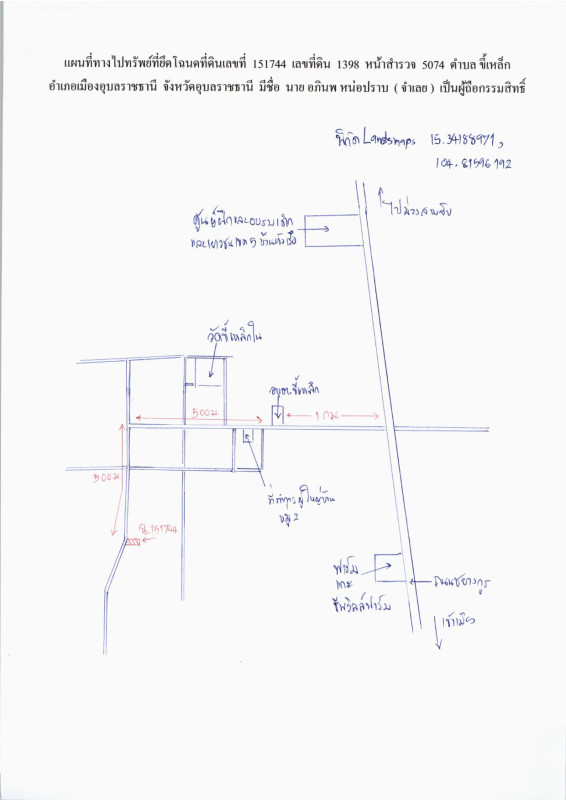 แผนที่ทางไปทรัพย์ที่ยึดโฉนดที่ดินเลขที่ 151744 เลขที่ดิน 1398 หน้าสำรวจ 5074 ตำบล ขี้เหล็ก
อำเภอเมืองอุบลราชธานี จังหวัดอุบลราชธานี มีชื่อ นาย อภินพ หน่อปราบ ( จำเลย ) เป็นผู้ถือกรรมสิทธิ์
พิกัด Landsmaps 15.34188971,
104.81596192
ไปม่วงสามสิบ
ศูนย์ฝึกและอบรมเด็ก
และเยาวชนเขต 5
วัดขี้เหล็กใน
อบต.ขี้เหล็ก
500 ม
1 กม.
500 ม
ที่ทำการผู้ใหญ่บ้าน
หมู่ 2
ฉ.151744
ฟาร์ม
แกะ
ซัพวิลล์ฟาร์ม
ถนนชยางกูร
เข้าเมือง